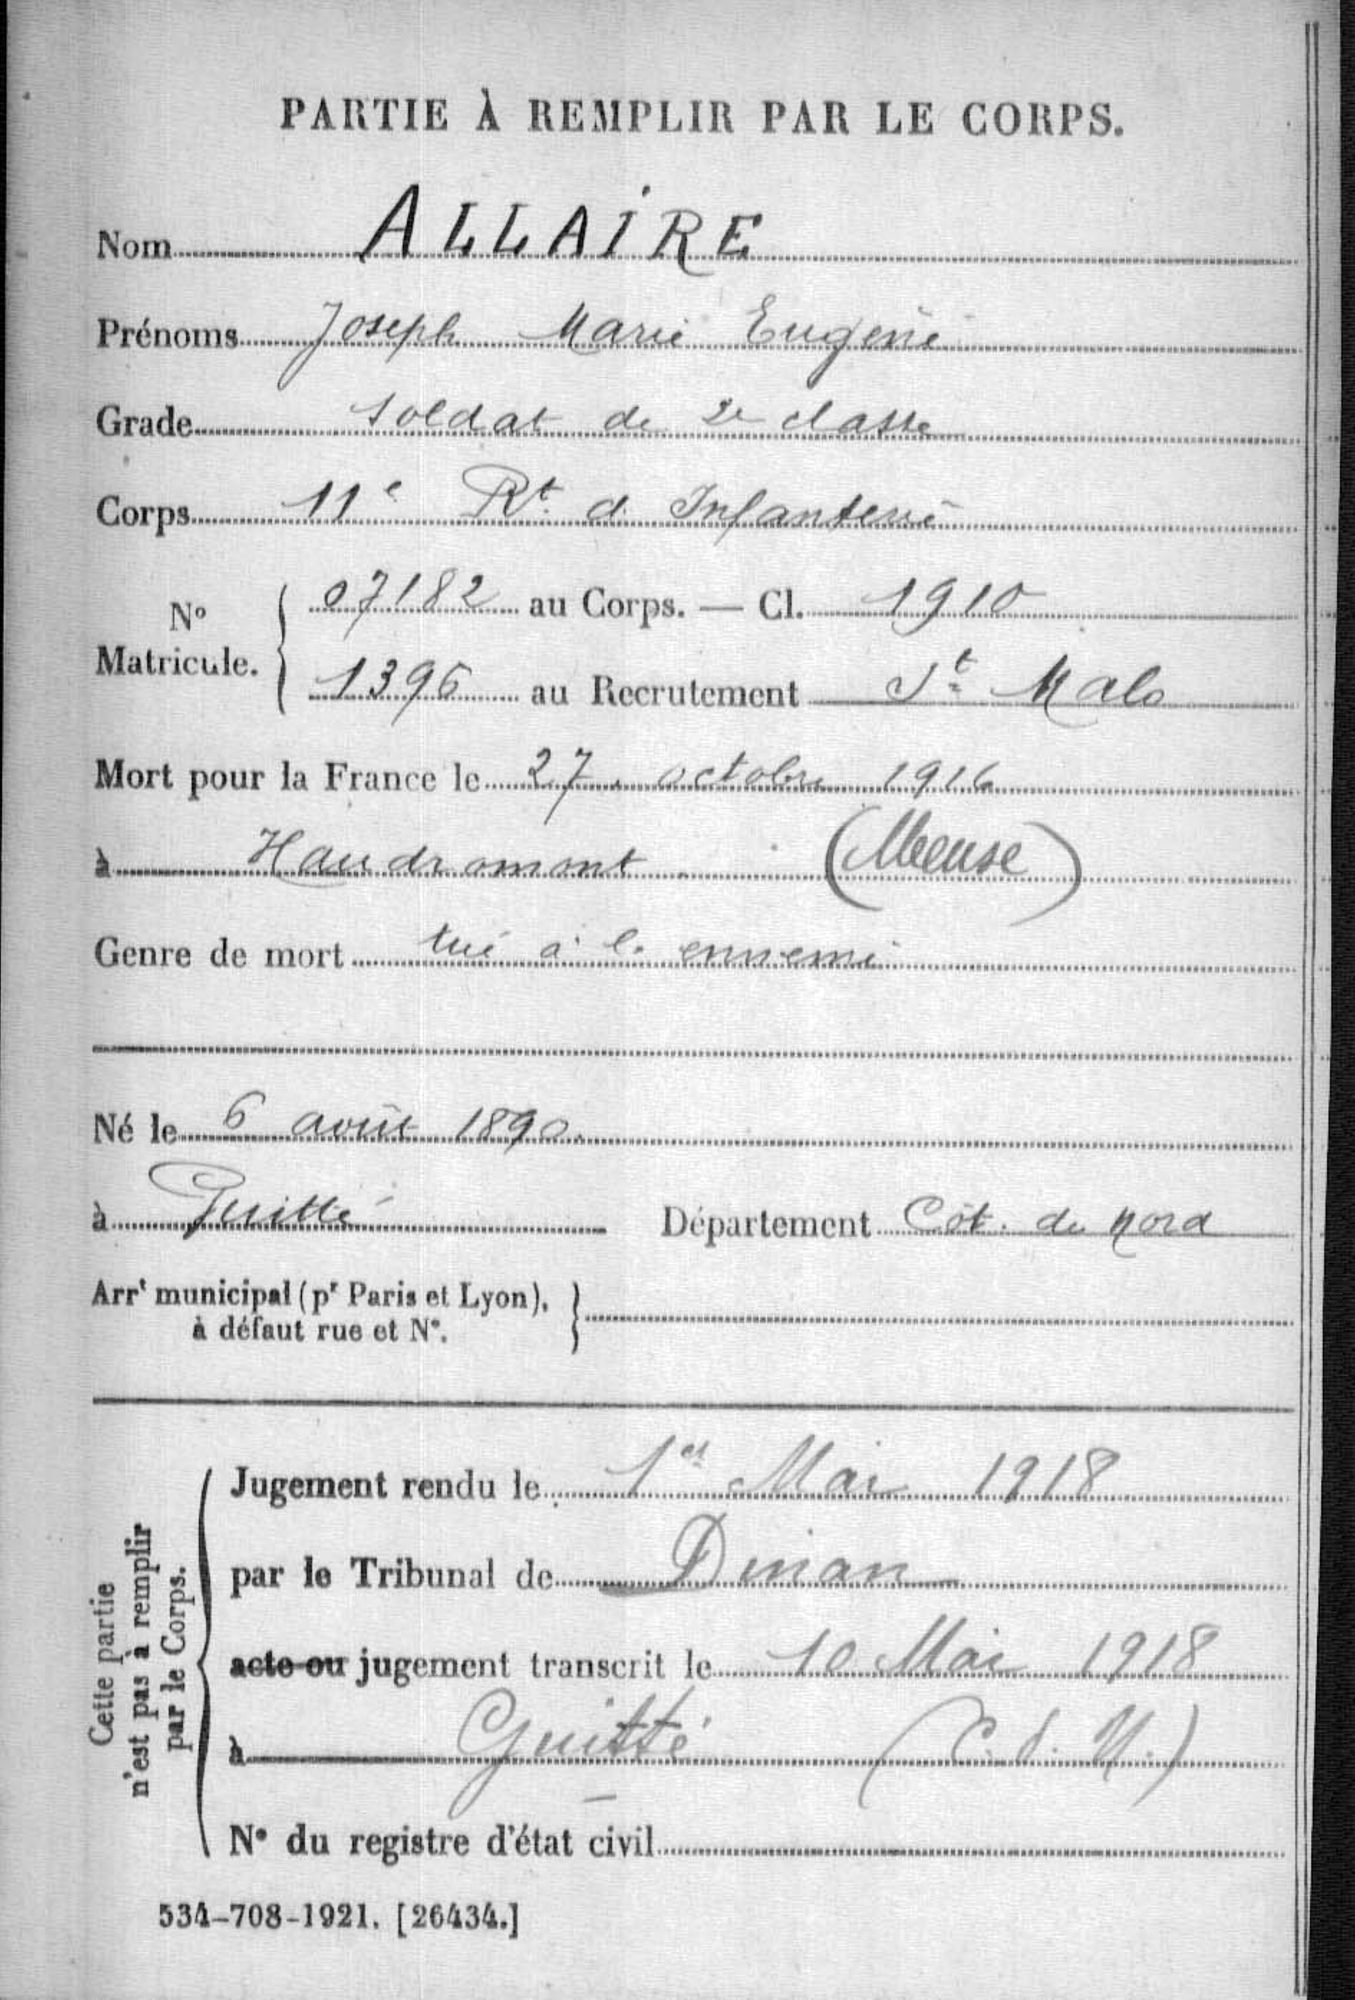 PARTIE À REMPLIR PAR LE CORPS.
Nom ALLAIRE
Prénoms Joseph Marie Eugène
Grade soldat de 2e classe
Corps 11e Rt d Infanterie
No Matricule. 07182 au Corps. — Cl. 1910
1396 au Recrutement St Malo
Mort pour la France le 27 octobre 1916
à Haudromont (Meuse)
Genre de mort tué à l' ennemi
Né le 6 août 1890.
à Guitté Département Côt. du Nord
Arrt municipal (pr Paris et Lyon),
à défaut rue et N°.
Cette partie
n'est pas à remplir
par le Corps.
Jugement rendu le 1er Mai 1918
par le Tribunal de Dinan
acte ou jugement transcrit le 10 Mai 1918
à Guitté (C. d. N.)
N° du registre d'état civil
534-708-1921. [26434.]